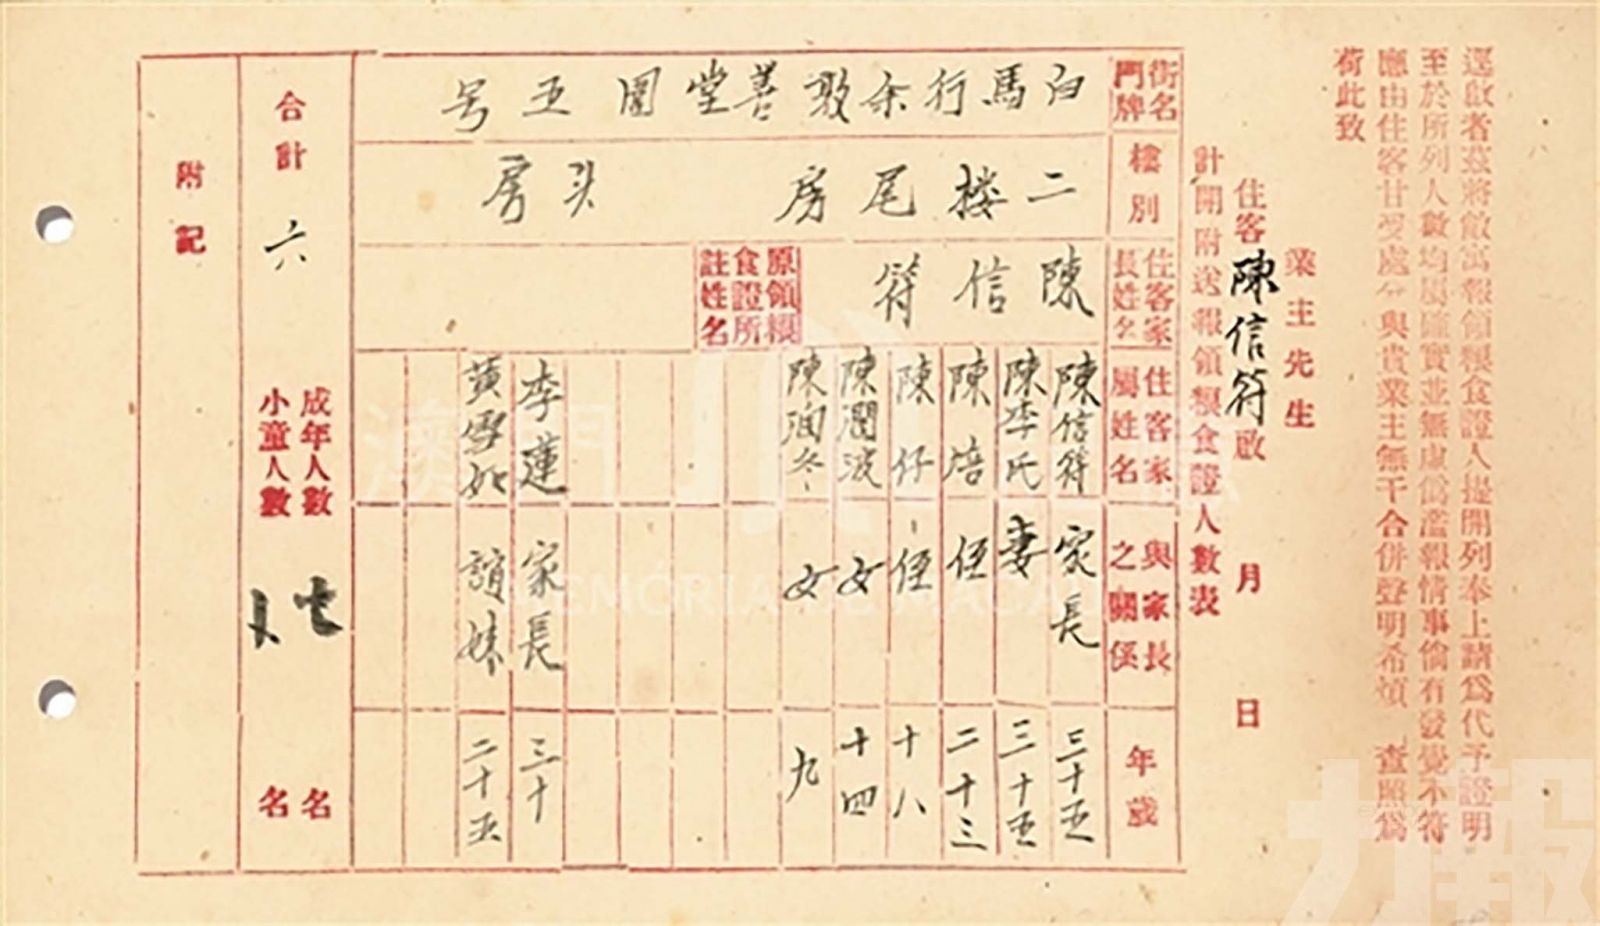 逕啟者茲將敝寓報領糧食證人提開列奉上請爲代予證明
至於所列人數均屬確實並無虛僞濫報情事倘有發覺不符
應由住客甘受處分與貴業主無干合併聲明希煩 查照爲
荷此致
業主先生
住客陳信符啟 月 日
計開附送報領糧食證人數表
街名門牌 白馬行余敦善堂圍五号
樓別 二楼尾房 头房
住客家長姓名 陳信符
原領糧食證所註姓名
住客家屬姓名 與家長之關係 年歲
陳信符 家長 三十五
陳李氏 妻 三十五
陳培 侄 二十三
陳仔 侄 十八
陳潤波 女 十四
陳洵冬 女 九
李蓮 家長 三十
黃雪如 誼妹 二十五
合計 六
成年人數 七 名
小童人數 名
附記
澳門
MEMÓRIA DE MACAU
力報